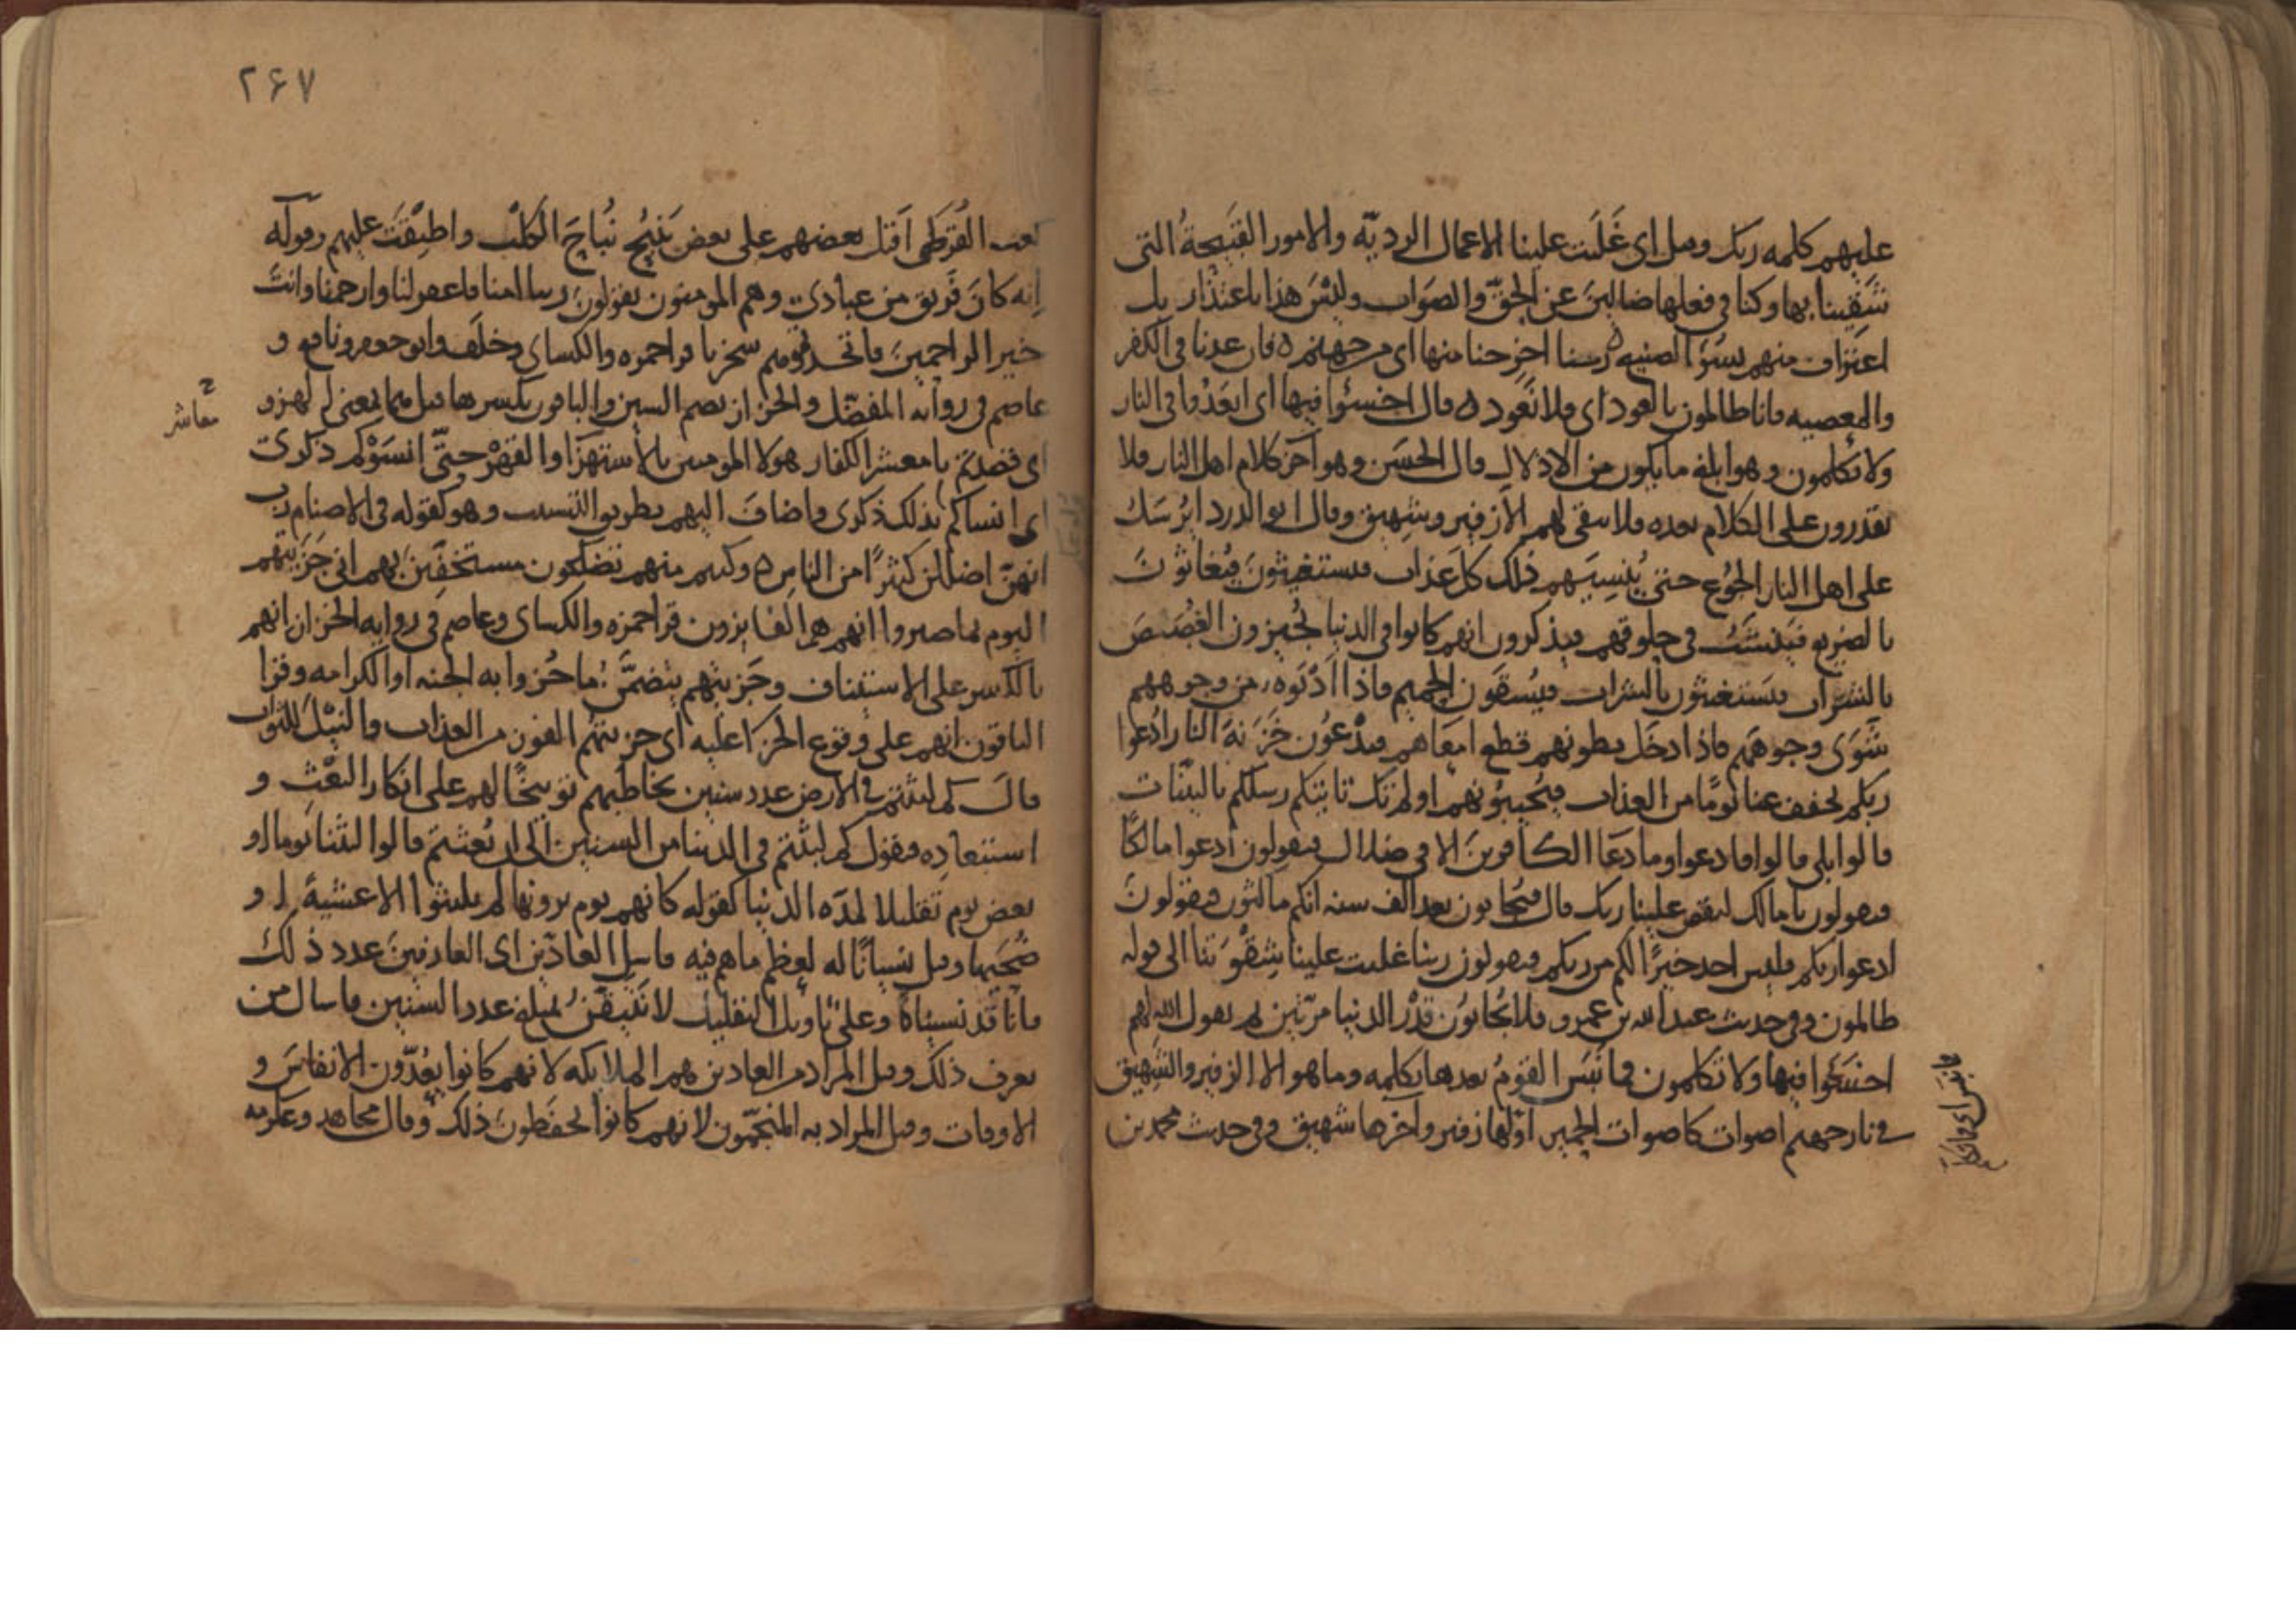 عليهم كلمه ربك وقيل اى غَلَبَت علينا الاعمال الرديّه والامور القَبيحةُ التى
شَقِينا بها وكنا فى فعلها ضالينَ عن الحقّ والصَواب وليْسَ هذا باعتذار بل
اعتراف منهم بسُوَ الصنيع ه ربنا اخرِجنا منها اى من جهنم ه فان عدنا فى الكفر
والمعصيه فانا ظالمون بالعود اى فلا نَعود ه قال اخسئوا فيها اى ابعَدُوا فى النار
ولا تكلمون وهو ابلغ ما يكون من الاذلال قال الحسَن وهو آخر كلام اهل النار فلا
يقدرون على الكلام بعده فلا يبقى لهم الا زفير وشهيق وقال ابو الدردا يُرسَل
على اهل النار الجُوع حتى يُنسِيَهم ذلك كل عَذاب فيستغيثونَ فيُغاثونَ
بالضريع فيَنشَبُ فى حلوقهم فيذكرون انهم كانوا فى الدنيا يُجيزون الغُصَصَ
بالشراب فيَستغيثون بالشراب فيُسقَون الحميم فاذا ادْنَوه من وجوههم
شَوَى وجوههم فاذا ادخَل بطونهم قطع امعَاهم فيدْعُون خَزَنةَ النار ادْعوا
ربكم يخفف عنا يومًا من العذاب فيُجيبونهم او لم تك تاتيكم رسلكم بالبيّنات
قالوا بلى قالوا فادعوا وما دعَا الكافرينَ الا فى ضلال فيقولون ادعوا مالكًا
فيقولون يا مالك ليقض علينا ربك قال فيُجابون بعد الف سنه انكم ماكثون فيقولونَ
ادعوا ربكم فليس احد خيرًا لكم من ربكم فيقولون ربنا غلبت علينا شِقْوَتنا الى قوله
ظالمون وفى حديث عبد الله بن عمرو فلا يُجابُون قدْرَ الدنيا مرّتين ثم يقول الله لهم
اخسَئوا فيها ولا تكلمون فما نَبَسَ القومُ بعدها بكلمه وما هو الا الزفير والشهيق
فى نار جهنم اصوات كاصوات الحمير اوّلها زفير وآخرها شهيق وفى حديث محمد بن
٢۶٧
كعب القُرَظى اَقبَل بعضهم على بعض يَنبُح نُباحَ الكلْب واطبِقَت عليهم وقوله
اِنه كانَ فَريق من عبادى وهم المومنون يقولونَ ربنا امنا فاغفر لنا وارحمنا وانتَ
خير الراحمينَ فاتخذتموهم سخريا قرا حمزه والكساى وخلَف وابو جعفر ونافع و
عاصم فى روايه المفضّل والخزاز بضم السين والباقون بكسرها قيل هما بمعنى لهزو
اى قصدتم يا معشر الكفار هولا المومنين بالاستهزا والقهْر حتّى انسَوْكم ذكرى
اى انساكم بذلك ذكرى واضافَ اليهم بطريق التسبب وهو كقوله فى الاصنام رب
انهنّ اضللن كثيرًا من الناس ه وكنتم منهم تضحكون مستخفّينَ بهم انى جَزَيتهم
اليوم بما صبروا انهم هم الفايزون قرا حمزه والكساى وعاصم فى روايه الخزاز انهم
بالكسر على الاستيناف وجَزيتهم يتضمَّن ما جُزوا به الجنه او الكرامه وقرا
الباقون انهم على وقوع الجزا عليه اى جزيتهُم الفوز من العذاب والنيْلَ للثواب
قال كم لبثتم فى الارض عدد سنين يخاطبهم توبيخًا لهم على انكار البَعْثِ و
استبعادِه فيقول كم لبثتم فى الدنيا من السنين الى ان بُعثتم قالوا لبثنا يوما او
بعض يوم تقليلا لمدّه الدنيا كقوله كانهم يوم يرونها لم يلبثوا الا عشيةً او
ضُحَيها وقيل نسيانًا له لعِظم ما هم فيه فاسل العادّين اى العارفينَ عدد ذلك
فانا قد نسيناهُ وعلى تاويل التقليل لا نتيقّنُ لمبلغ عدد السنين فاسال من
يعرف ذلك وقيل المراد من العادين هم الملايكه لانهم كانوا يعُدّون الانفاسَ و
الاوقات وقيل المراد به المنجّمون لانهم كانوا يحفَظونَ ذلك وقال مجاهد وعكرمه